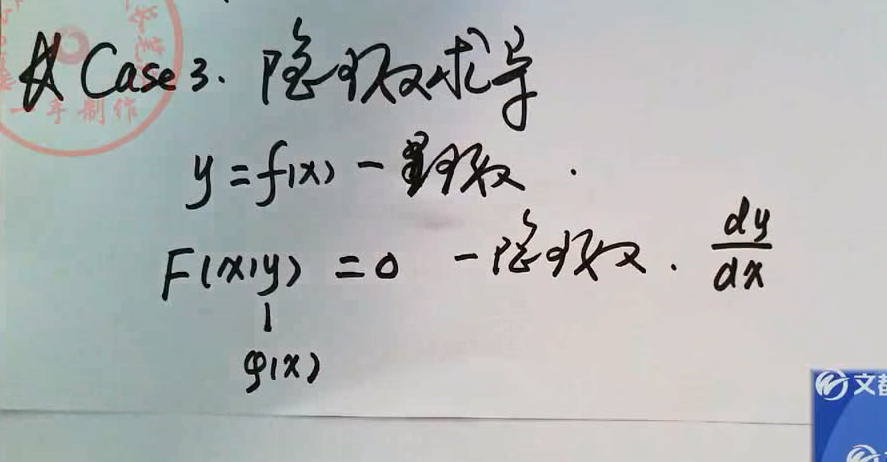 Case 3. 隐函数求导
y = f(x) — 显函数.
F(x,y) = 0 — 隐函数. dy/dx
φ(x)
制作
文都